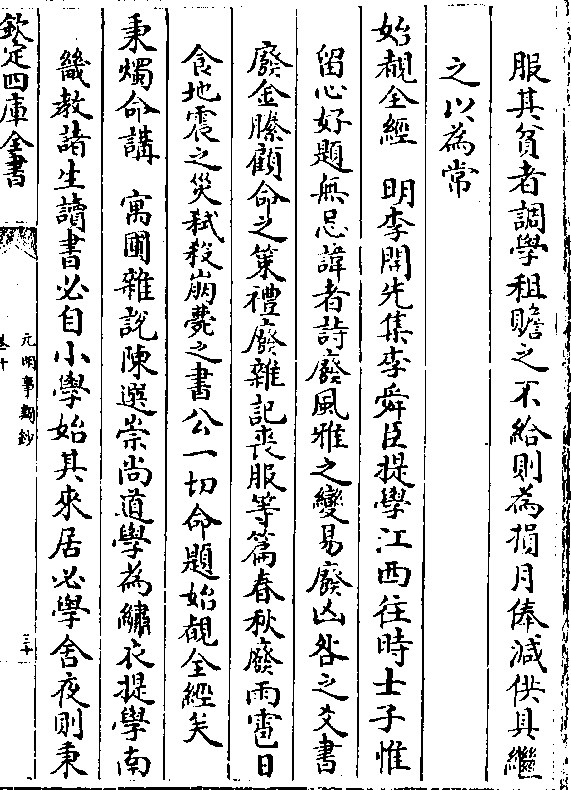 服其貧者調學租贍之不給則為損月俸減供具繼
之以為常
始覩全經　明李開先集李舜臣提學江西往時士子惟
留心好題無忌諱者詩廢風雅之變易廢凶咎之爻書
廢金縢顧命之策禮廢雜記喪服等篇春秋廢雨雹日
食地震之災弒殺崩薨之書公一切命題始覩全經矣
秉燭命講　寓圃雜説陳選崇尚道學為繡衣提學南
畿教諸生讀書必自小學始其來居必學舍夜則秉
欽定四庫全書
元明事類鈔
卷十
三十